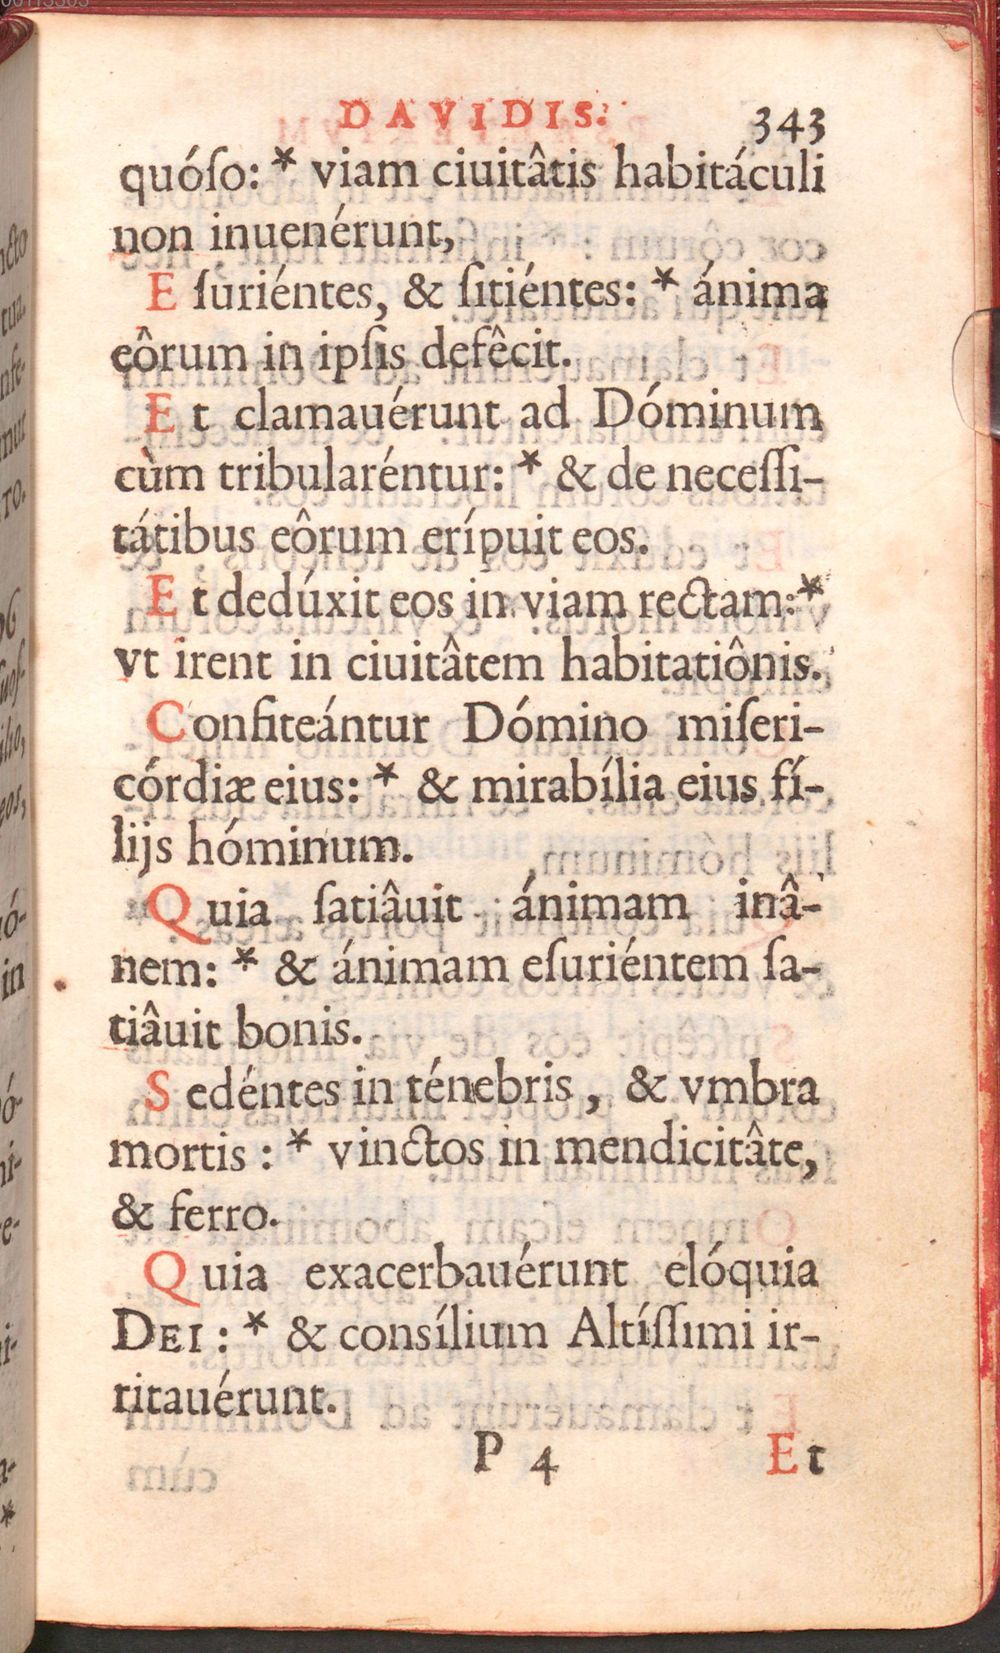 DAVIDIS. 343
quóſo: * viam ciuitâtis habitáculi
non inuenérunt,
Eſuriéntes, & ſitiéntes: * ánima
eôrum in ipſis defêcit.
Et clamauérunt ad Dóminum
cùm tribularéntur: * & de neceſſi-
tátibus eôrum erípuit eos.
Et dedúxit eos in viam rectam: *
vt irent in ciuitâtem habitatiônis.
Confiteántur Dómino miſeri-
córdiæ eius: * & mirabília eius fí-
lijs hóminum.
Quia ſatiâuit ánimam inâ-
nem: * & ánimam eſuriéntem ſa-
tiâuit bonis.
Sedéntes in ténebris, & vmbra
mortis: * vinctos in mendicitâte,
& ferro.
Quia exacerbauérunt elóquia
DEI: * & consílium Altíſſimi ir-
ritauérunt.
P 4 Et